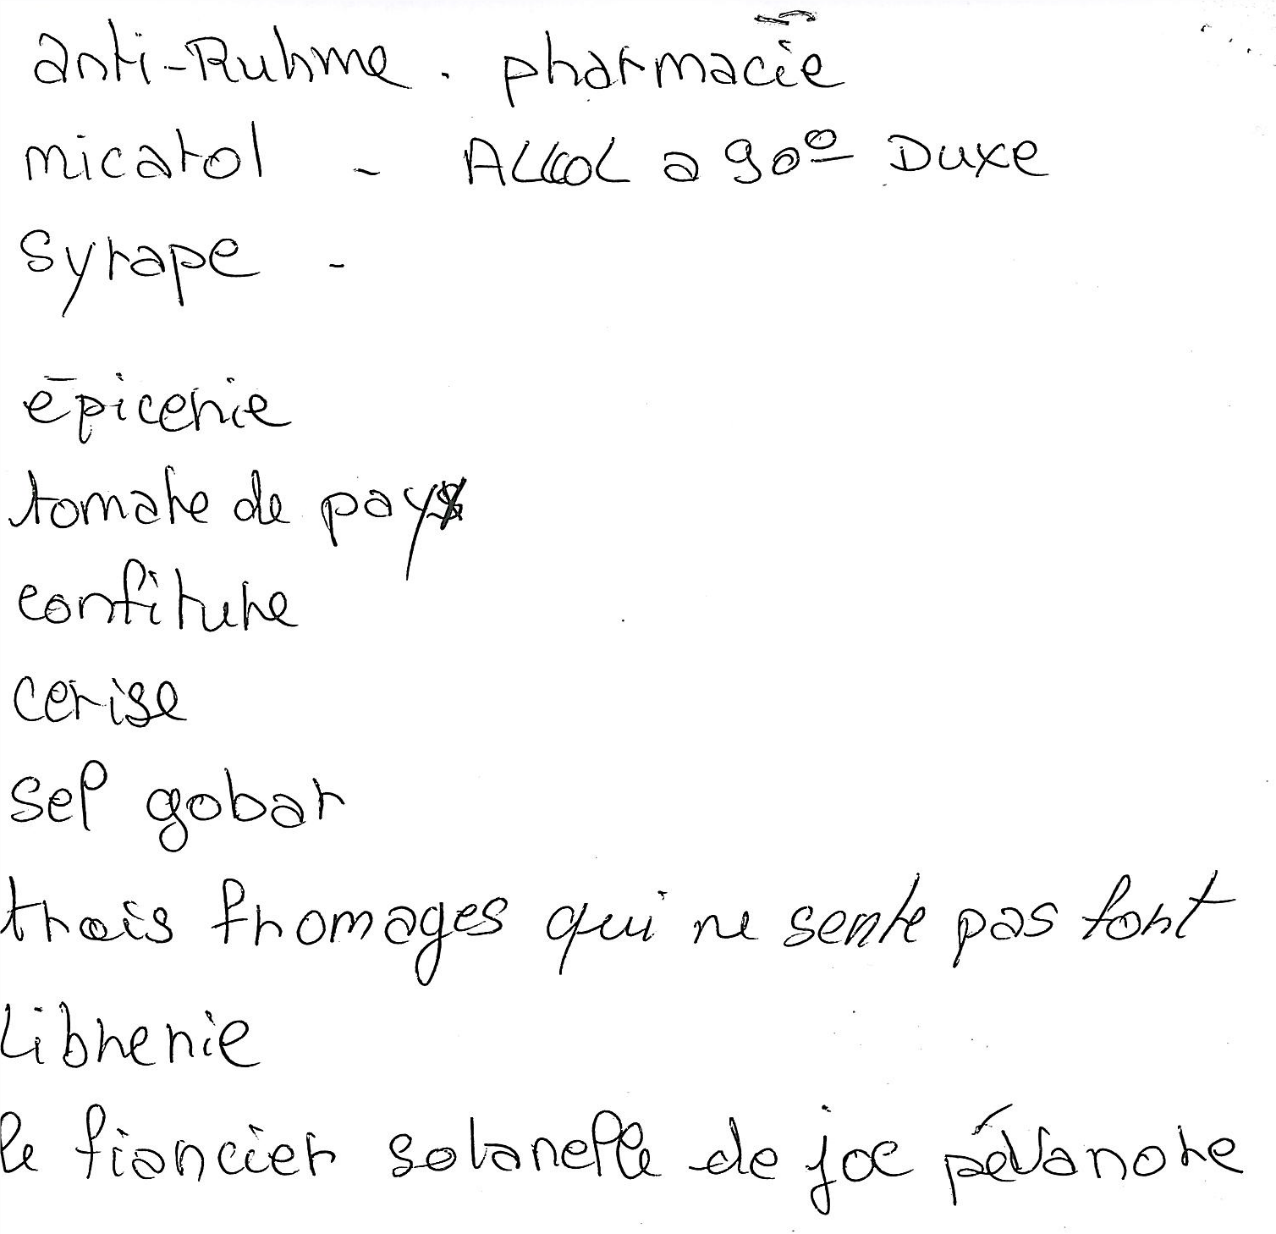 anti-Ruhme. pharmacie
micatol - ALLCOL a 90° Duxe
Syrape -
épicerie
tomate de pays
confiture
cerise
sel gobar
trois fromages qui ne sente pas fort
Librerie
le fiancier solanelle de joe